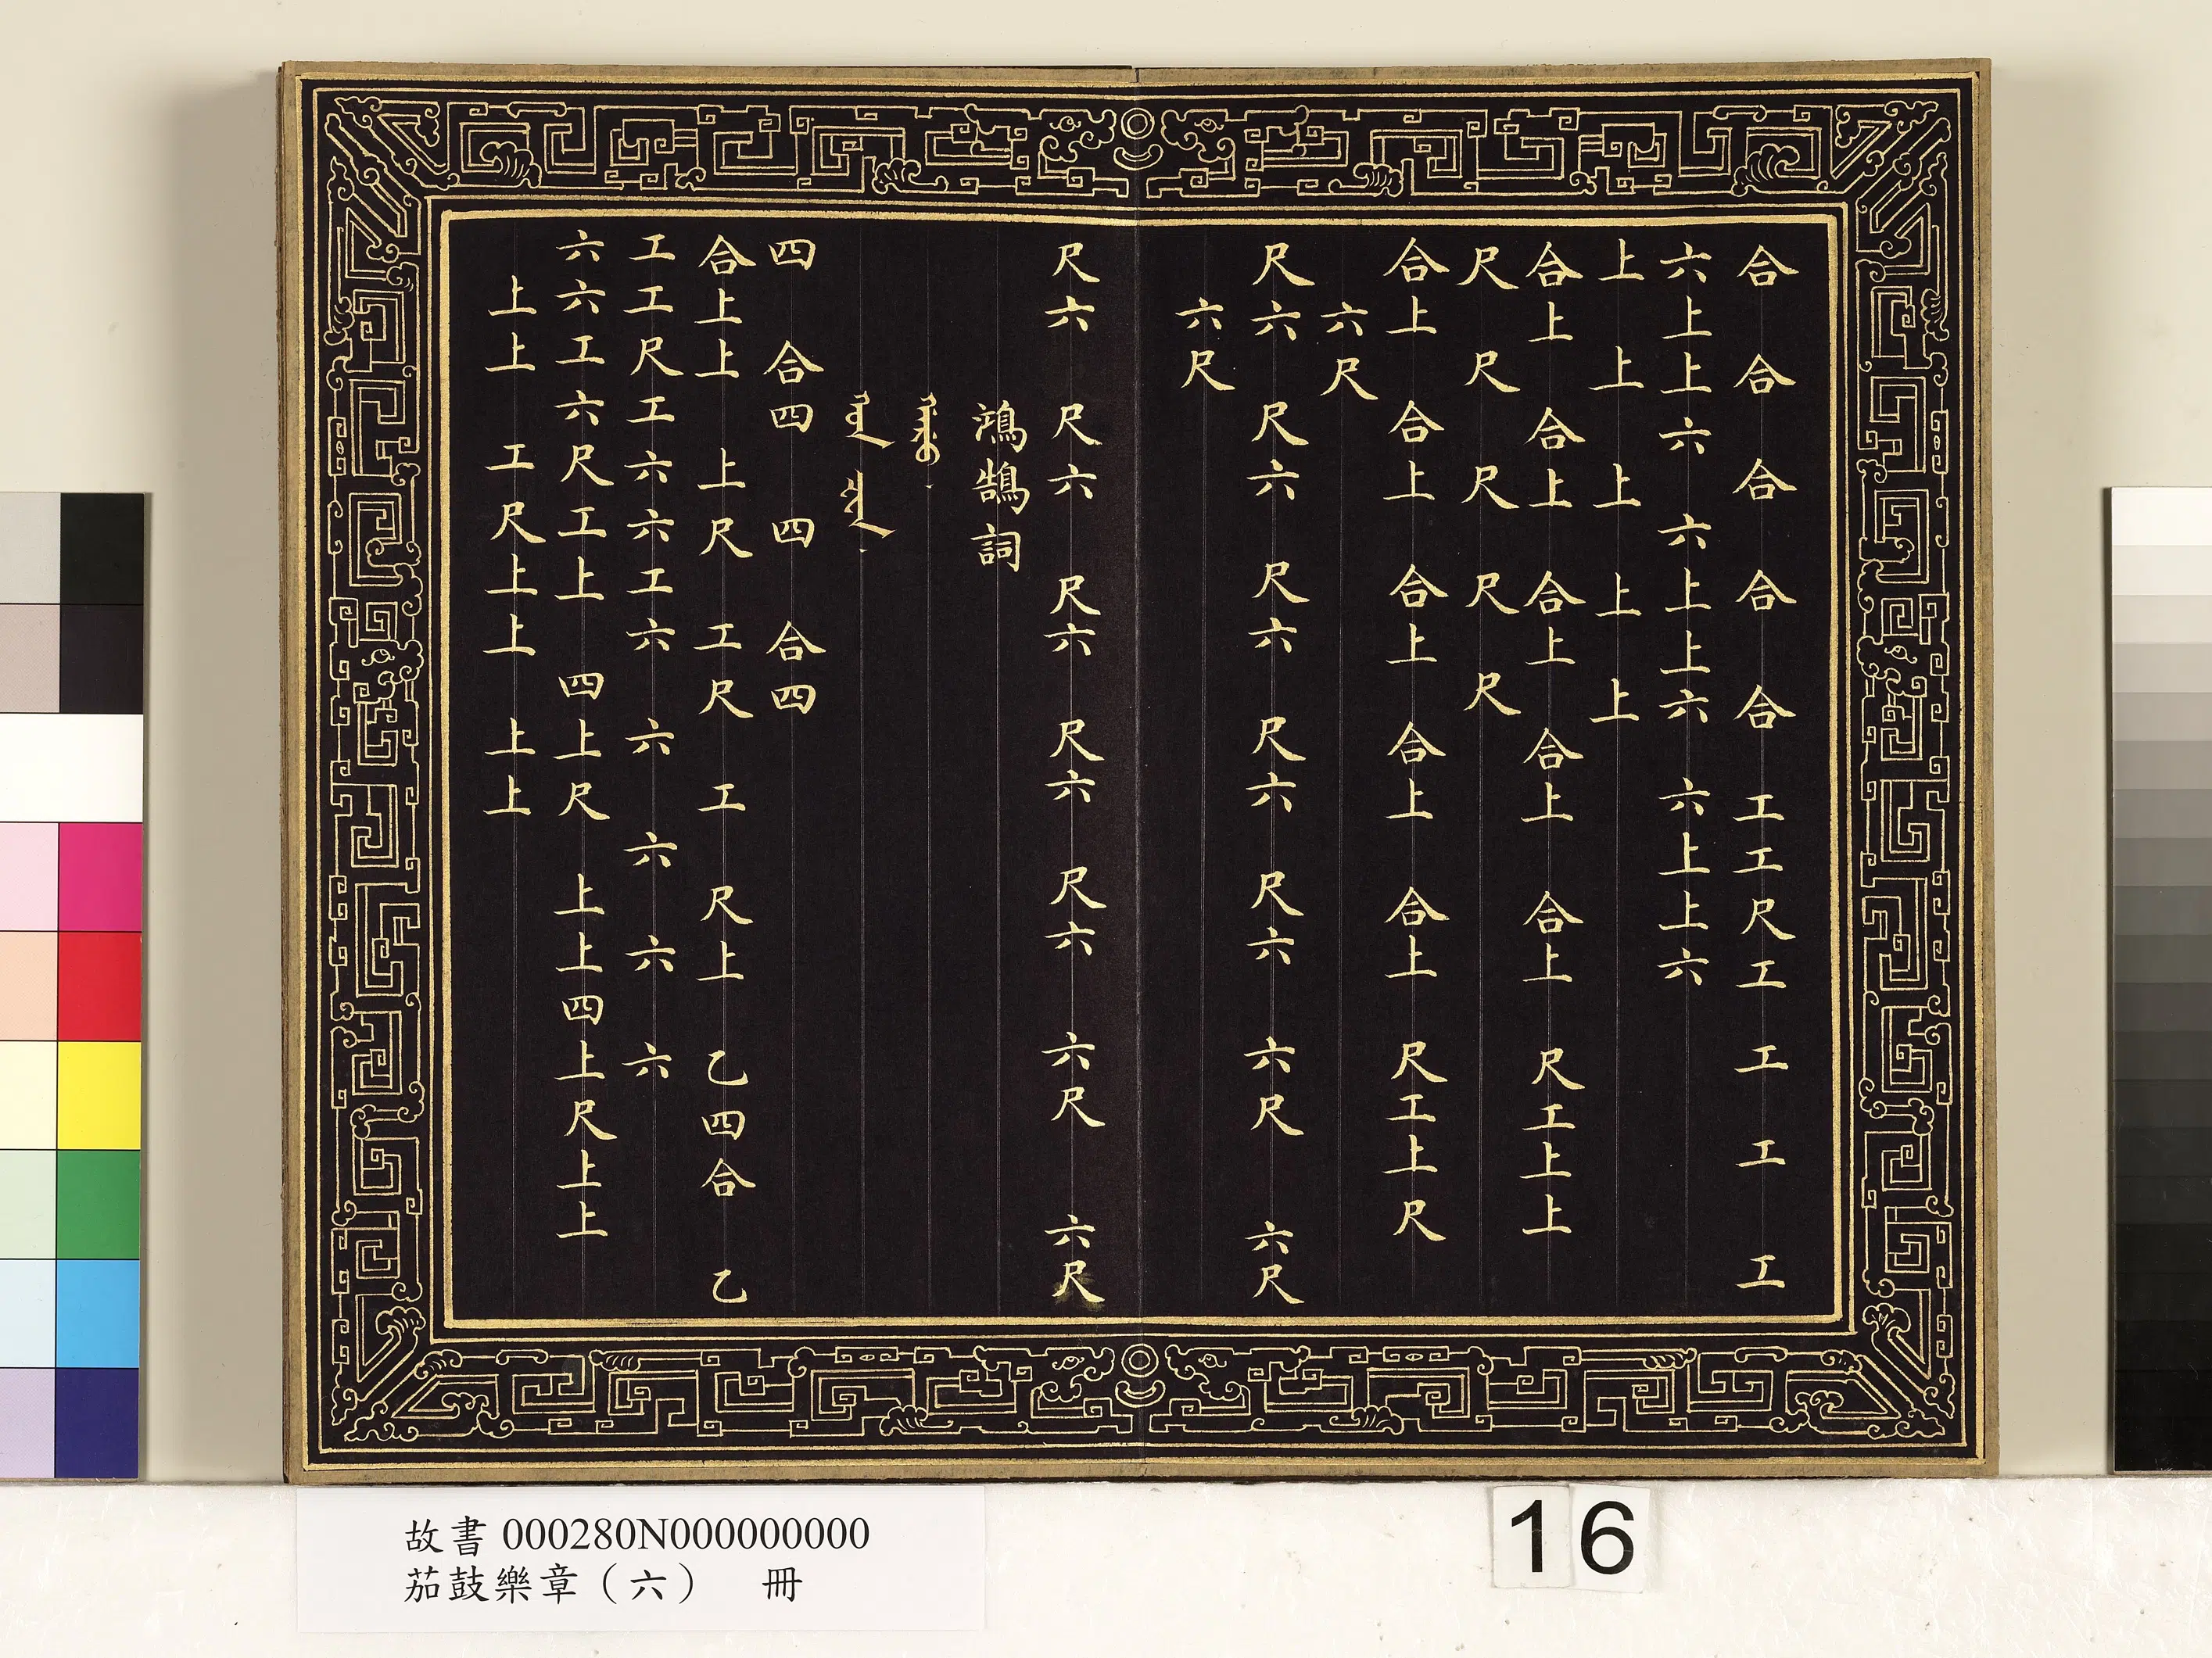 合 合 合 合 合 工工尺工 工 工 工
六上上六 六上上六 六上上六
上 上 上 上 上
合上 合上 合上 合上 合上 尺工上上
尺 尺 尺 尺 尺
合上 合上 合上 合上 合上 尺工上尺
六尺
尺六 尺六 尺六 尺六 尺六 六尺 六尺
六尺
尺六 尺六 尺六 尺六 尺六 六尺 六尺
鴻鵠詞
四 合四 四 合四
合上上 上尺 工尺 工 尺上 乙四合 乙
工工尺工六六工六 六 六 六 六
六六工六尺工上 四上尺 上上四上尺上上
上上 工尺上上 上上
故書 000280N000000000
茄鼓樂章（六） 冊
16